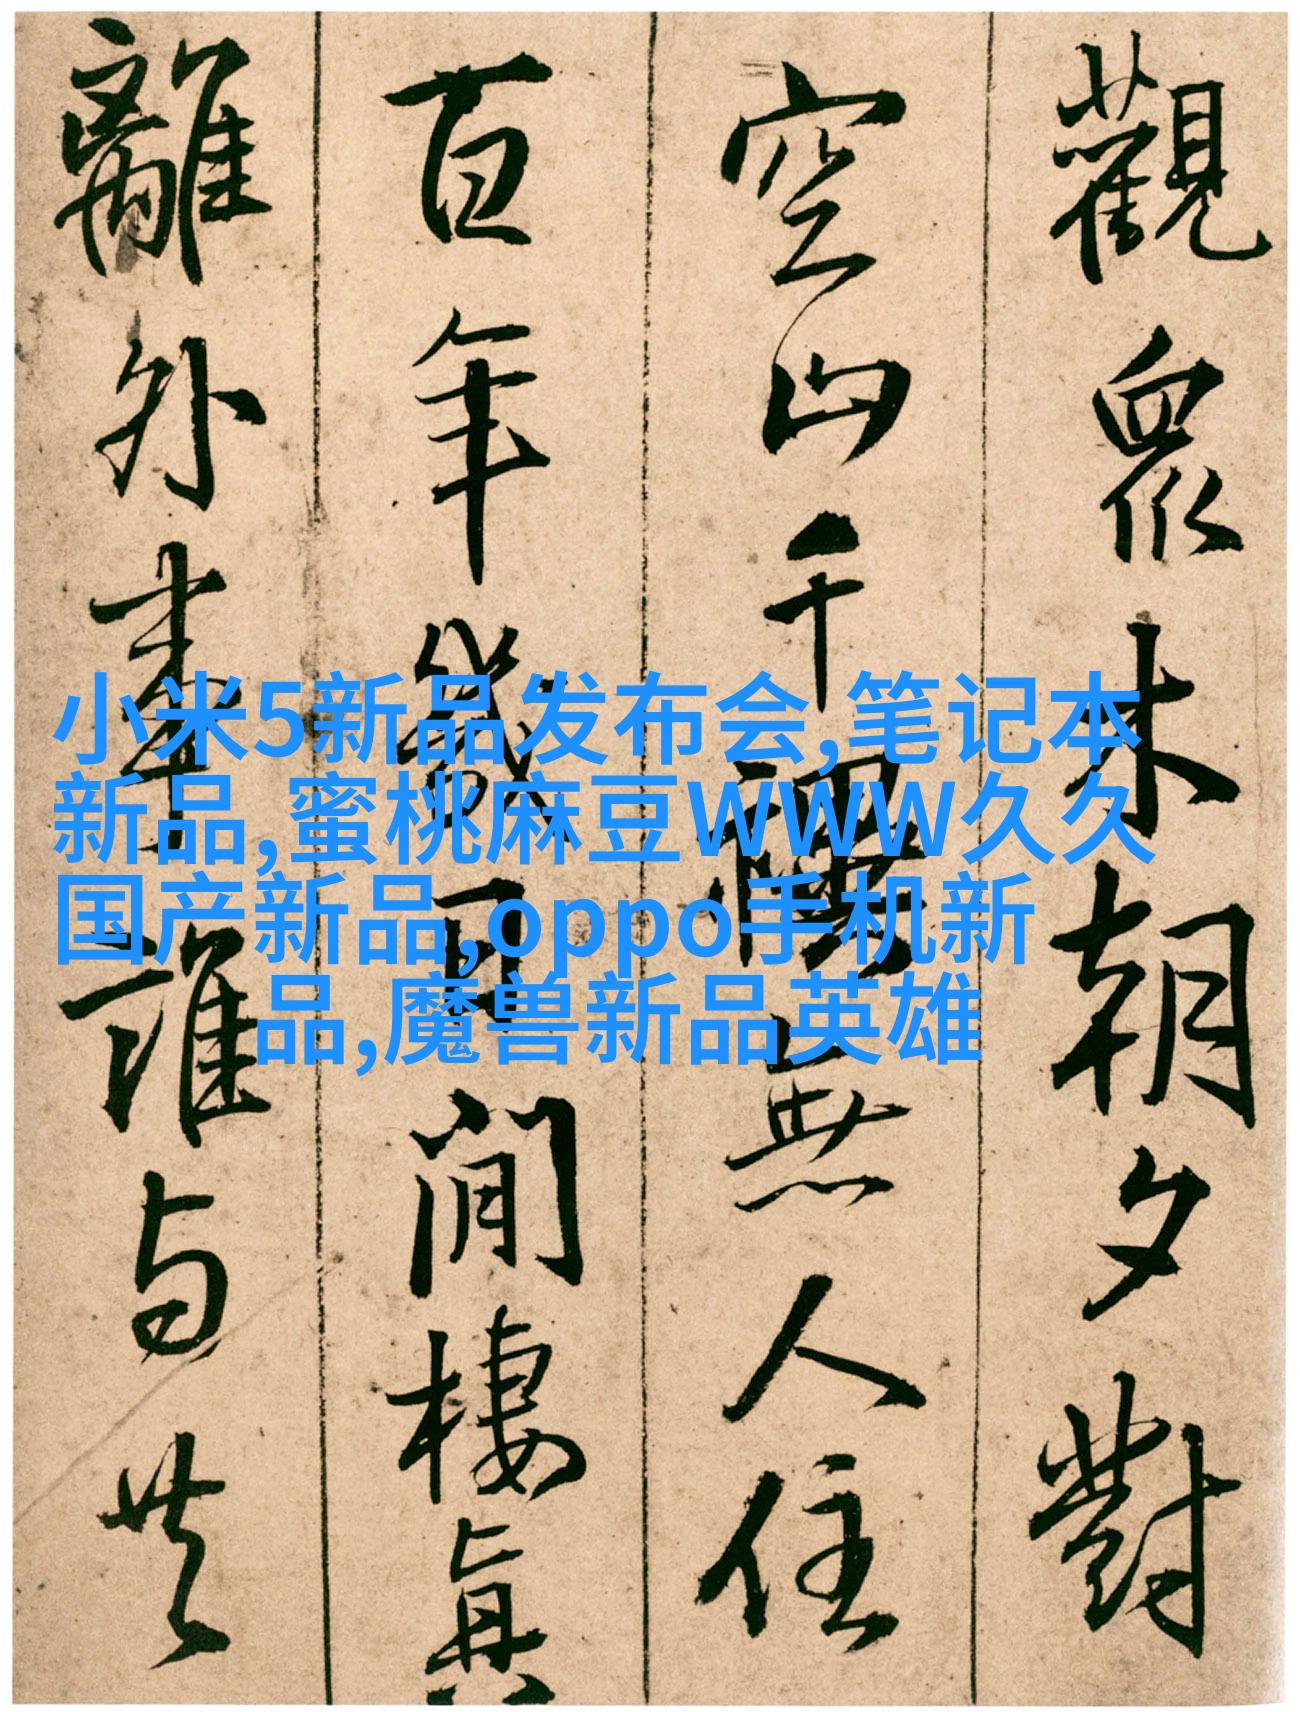 觀眾木朝夕對
空山千無人住
百年幾日閒棲真
離外事誰与共
小米5新品发布会,笔记本
新品,蜜桃麻豆WWW久久
国产新品,oppo手机新
品,魔兽新品英雄